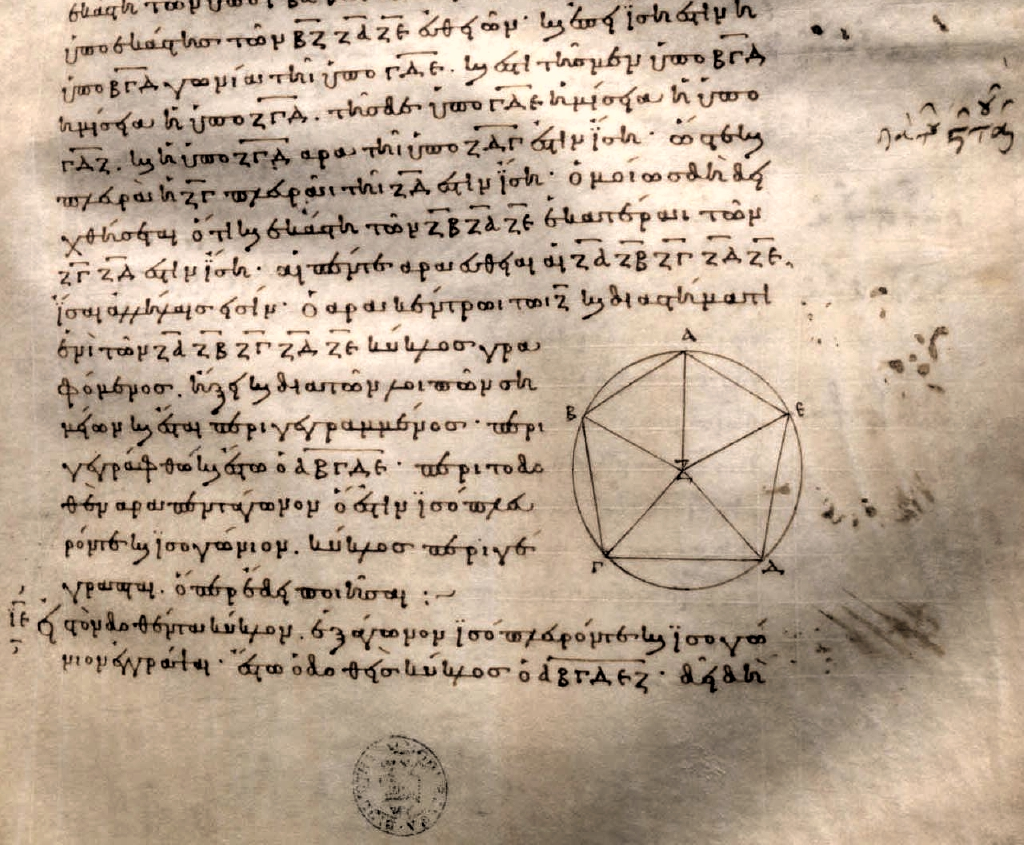 ὑπὸ ἑκάστης τῶν ΒΖ ΖΑ ΖΕ εὐθειῶν· καὶ ἐπεὶ ἴση ἐστὶν ἡ
ὑπὸ ΒΓΔ γωνία τῆι ὑπὸ ΓΔΕ. καὶ ἐστὶ τῆς μὲν ὑπὸ ΒΓΔ
ἡμίσεια ἡ ὑπὸ ΖΓΔ. τῆς δὲ ὑπὸ ΓΔΕ ἡμίσεια ἡ ὑπὸ
ΓΔΖ. καὶ ἡ ὑπὸ ΖΓΔ ἄρα τῆι ὑπὸ ΖΔΓ ἐστὶν ἴση· ὥστε καὶ
πλευρὰ ἡ ΖΓ πλευρᾶι τῆι ΖΔ ἐστὶν ἴση· ὁμοίως δὴ δει
χθήσεται ὅτι καὶ ἑκάστη τῶν ΖΒ ΖΑ ΖΕ ἑκατέραι τῶν
ΖΓ ΖΔ ἐστὶν ἴση· αἱ πέντε ἄρα εὐθεῖαι αἱ ΖΑ ΖΒ ΖΓ ΖΔ ΖΕ
ἴσαι ἀλλήλαις εἰσίν· ὁ ἄρα κέντρωι τῶι Ζ καὶ διαστήματι
ἑνὶ τῶν ΖΑ ΖΒ ΖΓ ΖΔ ΖΕ κύκλος γρα
φόμενος. ἥξει καὶ διὰ τῶν λοιπῶν ση
μείων καὶ ἔσται περιγεγραμμένος· περι
γεγράφθω καὶ ἔστω ὁ ΑΒΓΔΕ· περὶ τὸ δο
θὲν ἄρα πεντάγωνον ὅ ἐστιν ἰσόπλευ
ρόν τε καὶ ἰσογώνιον. κύκλος περιγέ
γραπται. ὅπερ ἔδει ποιῆσαι :~
Α
Β
Ε
Ζ
Γ
Δ
ΙΕ
εἰς τὸν δοθέντα κύκλον. ἑξάγωνον ἰσόπλευρόν τε καὶ ἰσογώ
νιον ἐγγράψαι· ἔστω ὁ δοθεὶς κύκλος ὁ ΑΒΓΔΕΖ· δεῖ δὴ